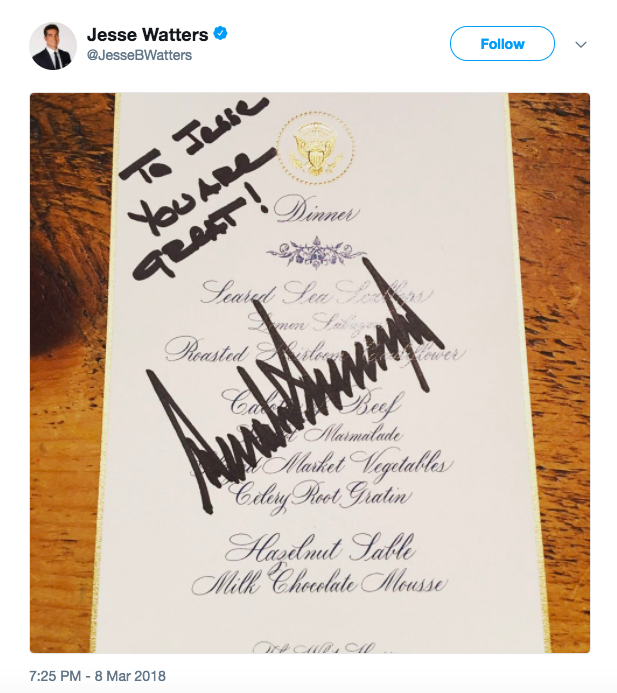 Jesse Watters
@JesseBWatters
Follow
To Jesse
YOU ARE
GREAT!
Dinner
Seared Sea Scallops
Lemon
Roasted Heirloom Cauliflower
Beef
Marmalade
Market Vegetables
Celery Root Gratin
Hazelnut Sable
Milk Chocolate Mousse
7:25 PM - 8 Mar 2018